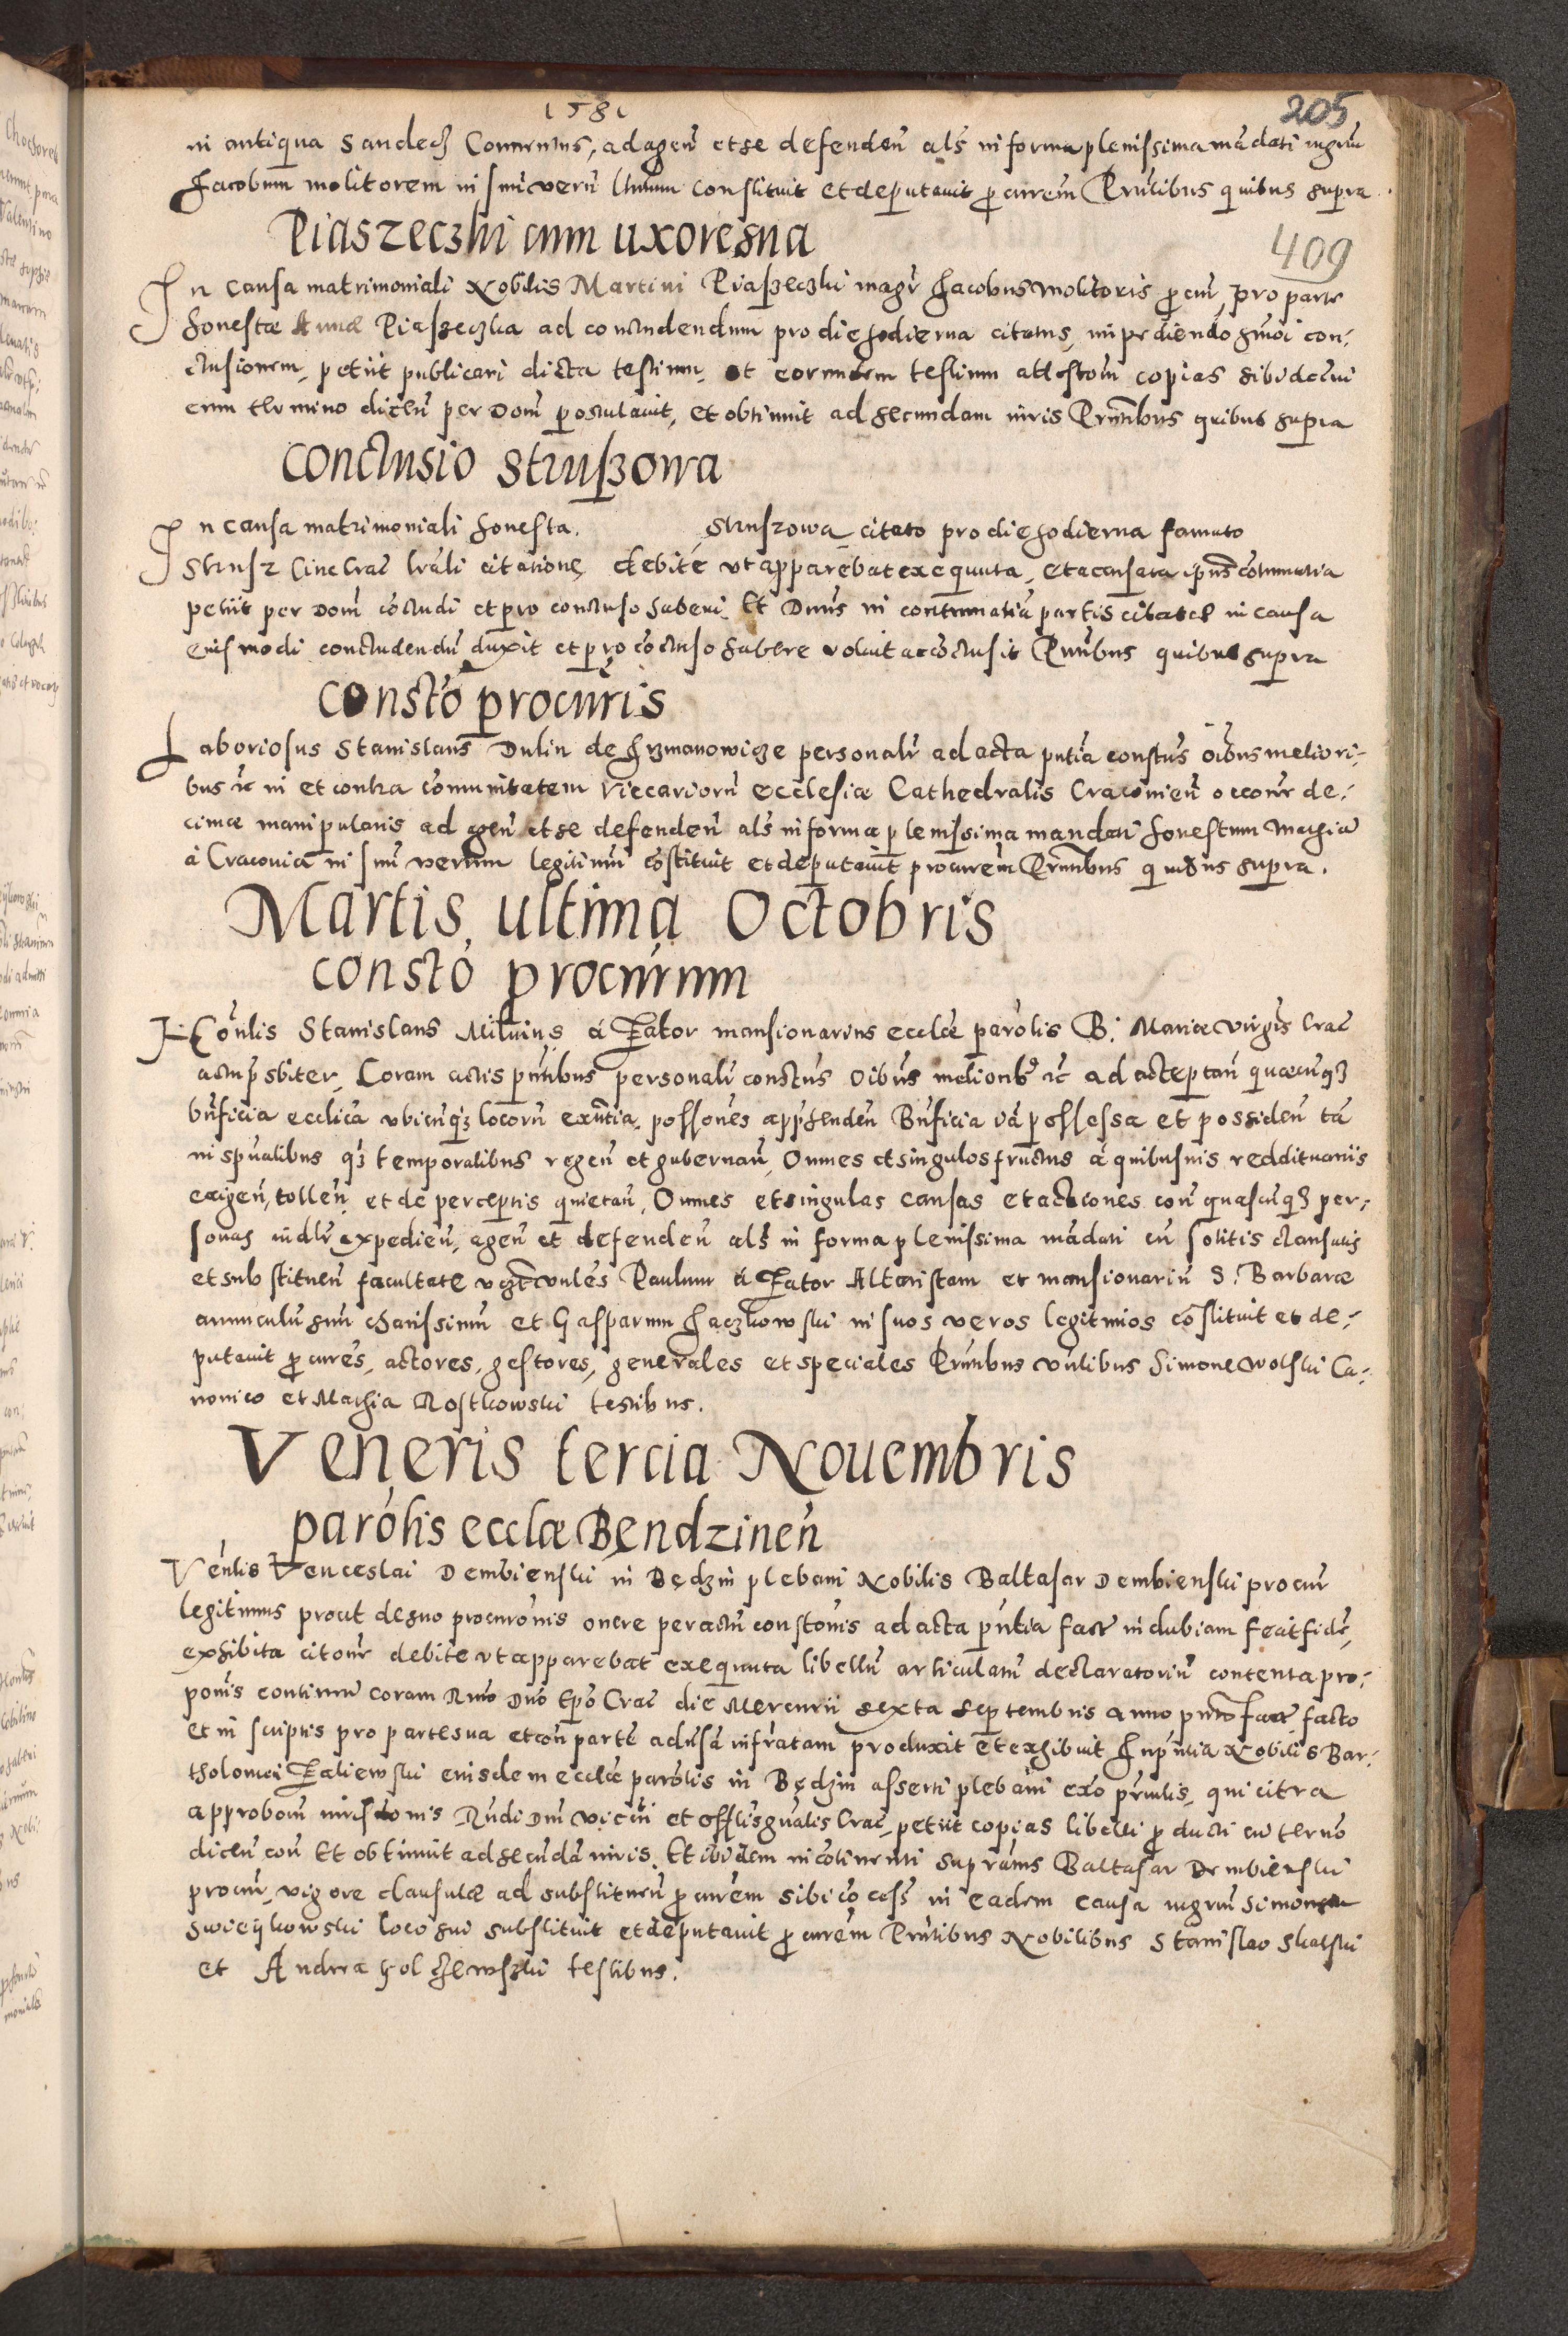 1581
205
in antiqua Sandecz Commenus, ad agen̄ et se defenden̄ als in forma plenissima mādati mgrum
Jacobum molitorem in suū verū ltimum constituit et deputauit procurem Pntibus quibus supra
Piaszeczki cum uxore sua
409
In causa matrimoniali Nobilis Martini Piaszeczki magr Jacobus molitoris procur, pro parte
honestæ Annæ Piaszeczka ad concludendum pro die hodierna citatus, impediendo hmoi con-
clusionem, petiit publicari dicta testium, et eorundem testium attestom copias sibi decerni
cum termino dicen̄ per Dom̄ postulauit, et obtinuit ad secundam iuris Pntibus quibus supra
Conclusio Struszowa
In causa matrimoniali honesta. Struszowa citato pro die hodierna famato
Strusz Ciue Crac lrāli citatione debite vt apparebat exequuta, et accusata ipius cōtumatia
petiit per Dom̄ cōcludi et pro concluso haberi. Et Dnus in contumatiā partis citatæ in causa
eiusmodi concludendū duxit et pro cōcluso habere voluit ac cōclusit Pntibus quibus supra
Constō procuris
Laboriosus Stanislaus Dulin de Hzmanowicze personalr ad acta pntia constus oībus meliori-
bus etc in et contra cōmunitatem viccariorū ecclesiæ Cathedralis Cracouien̄ occone de-
cimæ manipularis ad agen̄ et se defenden̄ als in forma plenissima mandati honestum Mathiā
à Cracouia in suū verum legitimū cōstituit et deputauit procurem Pntibus quibus supra.
Martis ultima Octobris
Constō procurum
Honlis Stanislaus Miluius à Zator mansionarius ecclæ parōlis B. Mariæ virgis Crac
actu p̄sbiter, Coram actis pntibus personalr constus oibus melioribꝫ etc ad acceptan̄ quæcunqꝫ
bn̄ficia ecclīca vbicunqꝫ locorū exn̄tia, possones app̄henden̄ Bn̄ficia v̄a possessa et possiden̄ tā
in spūalibus qꝫ temporalibus regen̄ et gubernan̄, Omnes et singulos fructus à quibusuis reddituariis
exigen̄, tollen̄ et de perceptis quietan̄, Omnes et singulas causas et actiones con̄ quascunqꝫ per-
sonas in dlr expedien̄, agen̄ et defenden̄ als in forma plenissima mādati cū solitis clausulis
et substituen̄ facultate vgte vnles Paulum à Zator Altaristam et mansionariū S. Barbaræ
auunculū suū charissimū et Gasparum Jaczkowski in suos veros legitimos cōstituit et de-
putauit procures, actores, gestores, generales et speciales Pntibus vnlibus Simone Wolski Ca-
nonico et Mathia Rostkowski testibus.
Veneris tercia Nouembris
parōlis ecclæ Bendzinen̄
Venlis Venceslai Dembienski in Będzin plebani Nobilis Baltasar Dembienski procur
legitimus prout de suo procuronis onere per actū constonis ad acta pntia factæ indubiam fecit fidē,
exhibita citone debite vt apparebat exequuta libellū articulatū declaratoriū contenta pro-
ponis continen̄ coram Rmo Dno Epō Crac die Mercurii sexta Septembris anno pnti factæ facto
et in scriptis pro parte sua et con̄ partē aduersā infrātam produxit et exhibuit In pntia Nobilis Bar-
tholomei Zaliewski eiusdem ecclæ parōlis in Będzin asserti plebani exō pnntis, qui citra
approbom iurisdonis Rndi Dni vicarii et offlis gnālis Crac, petiit copias libelli producti cū termo
dicen̄ con̄ Et obtinuit ad secūdā iuris. Et ibidem in cōtinenti suprāms Baltasar Dembienski
procur, vigore clausulæ ad substituen̄ procurem sibi cōcess̄ in eadem causa mgrum Simonem
Swięykowski loco sui substituit et deputauit procurem Pntibus Nobilibus Stanislao Skalski
et Andrea Golczewski testibus.